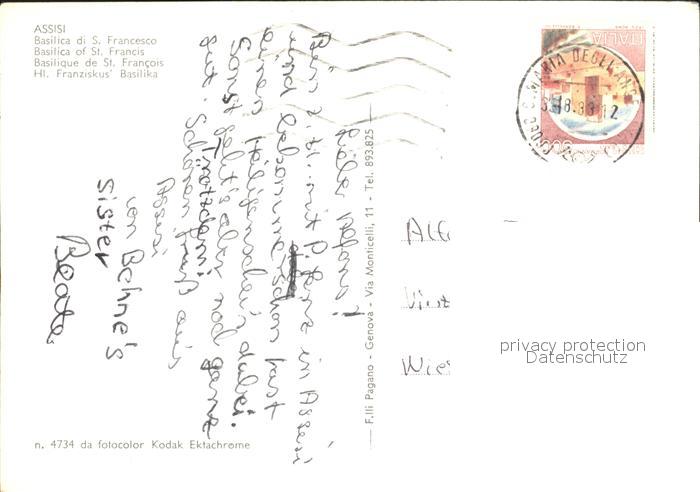 ASSISI
Basilica di S. Francesco
Basilica of St. Francis
Basilique de St. François
Hl. Franziskus' Basilika
ITALIA
S. MARIA DEGLI
Bin z. Zt. mit P. in Assisi
und bekomme schon fast
einen Heiligenschein dabei.
Sonst geht's aber noch ganz
gut. Trotzdem:
Schönen Gruß aus
Assisi
von Behne's
Sister
Beate
F.lli Pagano - Genova - Via Monticelli, 11 - Tel. 893.825
Wies
privacy protection
Datenschutz
n. 4734 da fotocolor Kodak Ektachrome